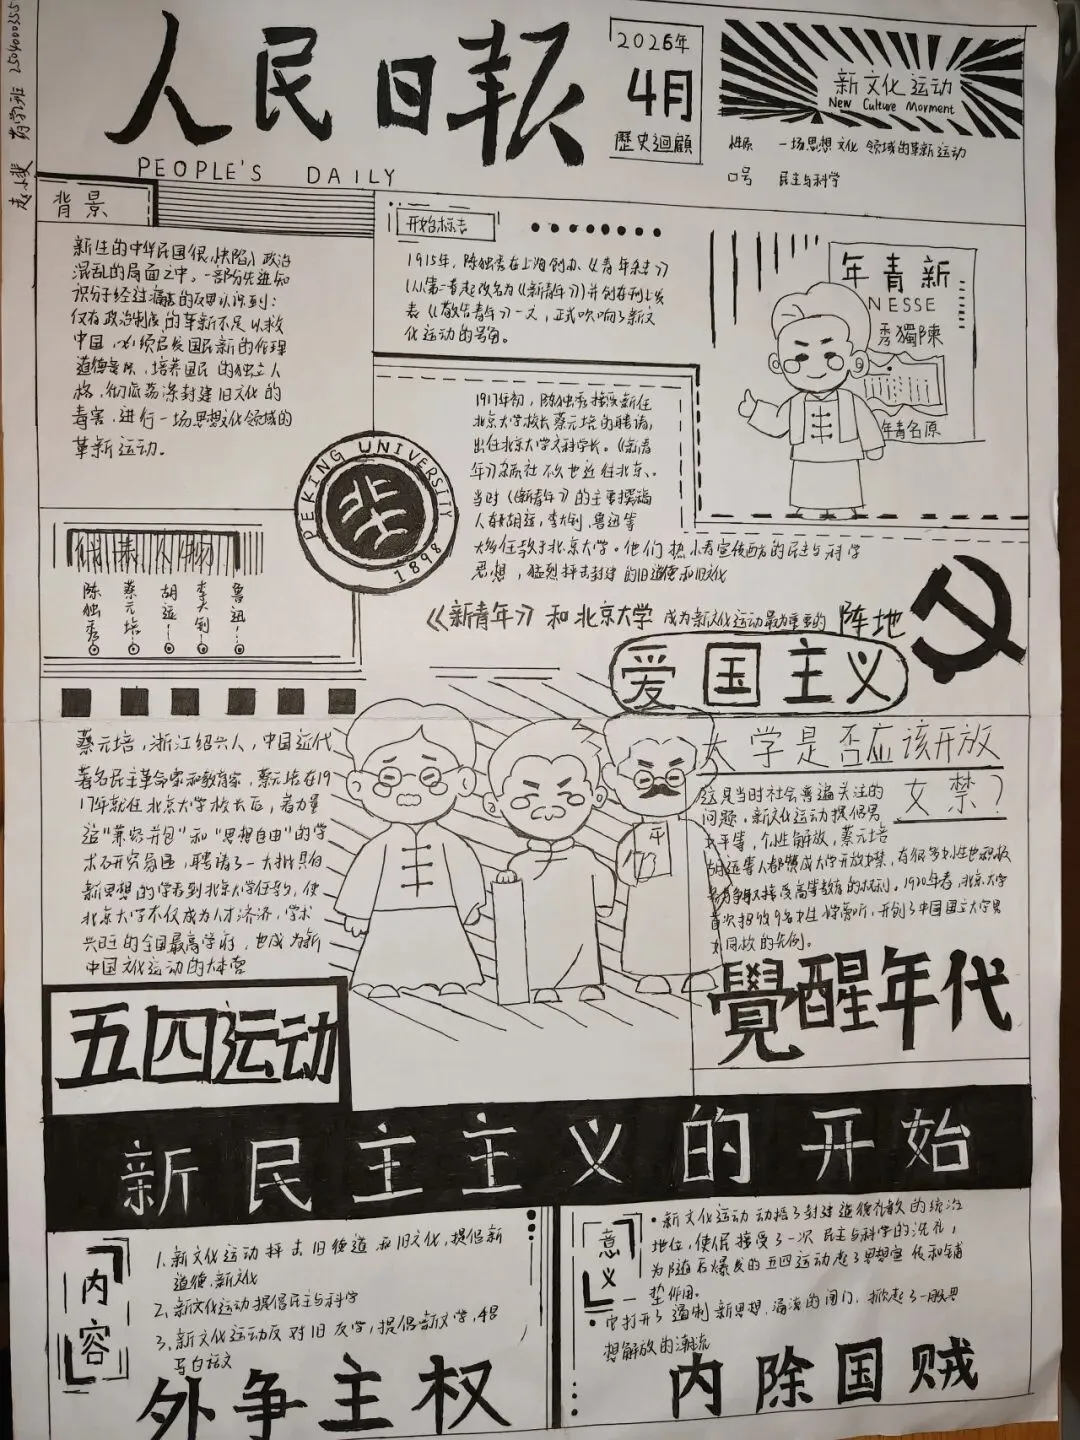 人民日报
PEOPLE'S DAILY
2026年
4月
歷史迴顧
新文化运动
New Culture Morment
性质 一场思想文化领域的革新运动
口号 民主与科学
背景
新生的中华民国很快陷入政治
混乱的局面之中。一部分先进知
识分子经过痛苦的反思认识到：
仅有政治制度的革新不足以救
中国，必须启发国民新的伦理
道德意识，培养国民的独立人
格，彻底荡涤封建旧文化的
毒害，进行一场思想文化领域的
革新运动。
开始标志
1915年，陈独秀在上海创办《青年杂志》
(从第二卷起改名为《新青年》)并创在刊上发
表《敬告青年》一文，正式吹响了新文
化运动的号角。
年青新
NESSE
秀獨陳
年青名原
1917年初，陈独秀接受新任
北京大学校长蔡元培的聘请，
出任北京大学文科学长。《新青
年》杂志社不久也迁往北京。
当时《新青年》的主要撰稿
人有胡适，李大钊，鲁迅等
大多任教于北京大学。他们热心宣传西方的民主与科学
思想，猛烈抨击封建的旧道德和旧文化
《新青年》和北京大学成为新文化运动最为重要的阵地
PEKING UNIVERSITY
1898
代表人物
陈独秀
蔡元培
胡适
李大钊
鲁迅
爱国主义
蔡元培，浙江绍兴人，中国近代
著名民主革命家和教育家，蔡元培在19
17年就任北京大学校长后，着力营
造"兼容并包"和"思想自由"的学
术研究氛围，聘请了一大批具有
新思想的学者到北京大学任教，使
北京大学不仅成为人才济济，学术
兴旺的全国最高学府，也成为新
中国文化运动的大本营
大学是否应该开放
女禁？
这是当时社会普遍关注的
问题，新文化运动提倡男
女平等，个性解放，蔡元培
胡适等人都赞成大学开放女禁，有很多女生也积极
争取接受高等教育的权利。1920年春，北京大学
首次招收9名女生入学旁听，开创了中国国立大学男
女同校的先例。
覺醒年代
五四运动
新民主主义的开始
内容
1、新文化运动抨击旧德道和旧文化，提倡新
道德，新文化
2、新文化运动提倡民主与科学
3、新文化运动反对旧文学，提倡新文学，提倡
写白话文
外争主权
意义
•新文化运动动摇了封建道德礼教的统治
地位，使人民接受了一次民主与科学的洗礼，
为随后爆发的五四运动起了思想宣传和铺
垫作用。
•它打开了遏制新思想涌流的闸门，掀起了一股思
想解放的潮流
内除国贼